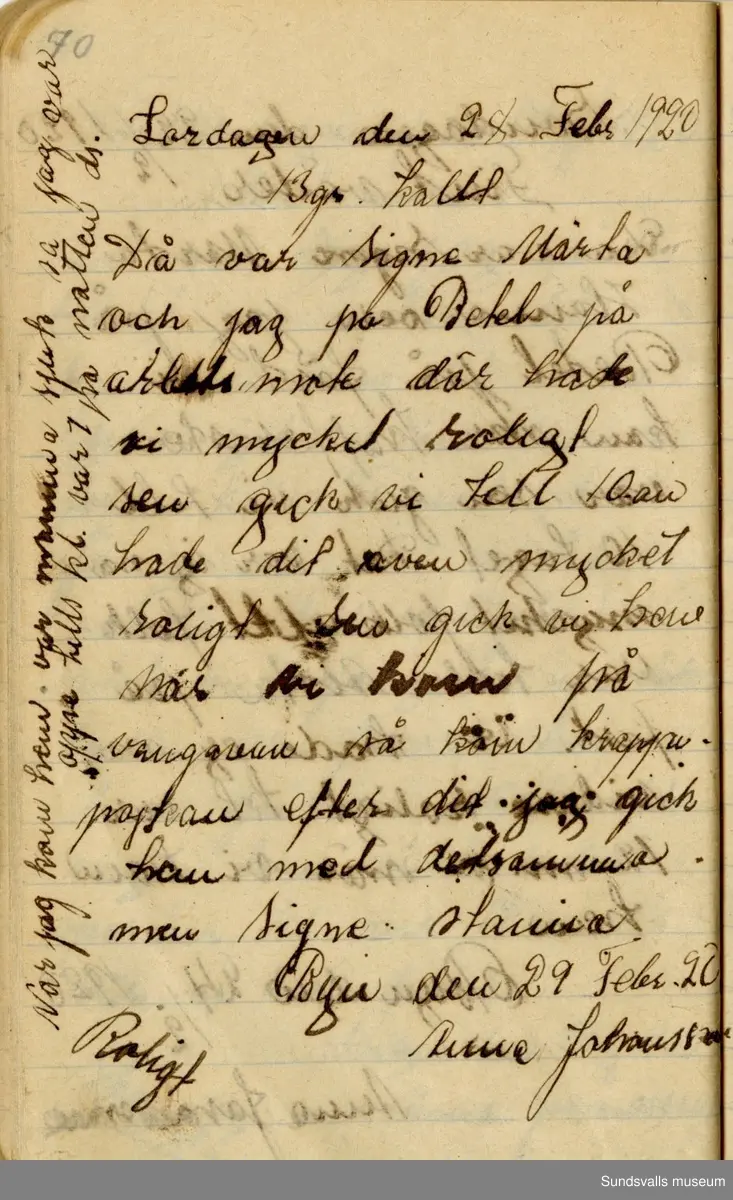 70
Lördagen den 28 Febr 1920
13 gr. kallt
Då var Signe Märta
och jag po Betel på
arbets möte där hade
vi mycket roligt
sen gick vi till 10-an
hade dit även mycket
roligt sen gick vi hem
när vi kom på
vengavan så kom krappu-
pojkan efter dit jag gick
hem med detsamma.
men Signe stanna
Byn den 29 Febr. 20
Anna Johansson
Roligt
När jag kom hem var mamma sjuk så jag var
oppe tills kl. var 1 på natten ds.
Sundsvalls museum